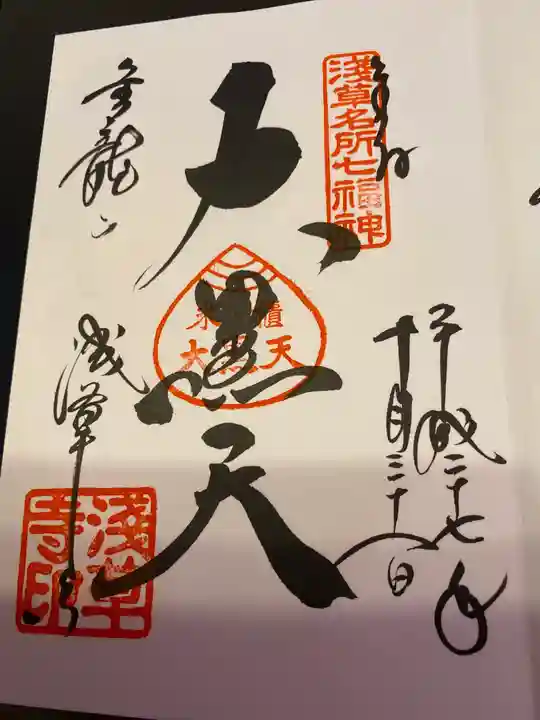 奉拝
淺草名所七福神
平成二十七年
十月三十一日
大黒天
米櫃
大黒天
金龍山
浅草寺
淺草
寺印